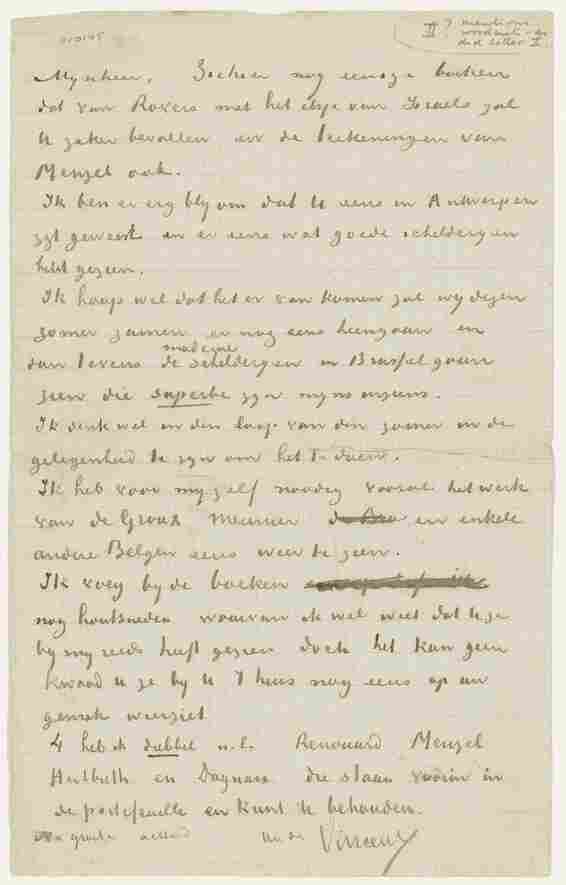 II ? mentions
woodcuts -
did letter I
Mijnheer, Hierbij nog eenige boeken
dat van Rovers met het etsje van Israels zal
U zeker bevallen en de teekeningen van
Menzel ook.
Ik ben er erg blij om dat U eens in Antwerpen
zijt geweest en er eens wat goede schilderijen
hebt gezien.
Ik hoop wel dat het er van komen zal wij dezen
zomer zamen er nog eens heengaan en
dan tevens de moderne schilderijen in Brussel gaan
zien die superbe zijn mijns inziens.
Ik denk wel in den loop van den zomer in de
gelegenheid te zijn om het te doen.
Ik heb voor mijzelf noodig vooral het werk
van de Groux Meunier en enkele
andere Belgen eens weer te zien.
Ik voeg bij de boeken
nog houtsneden waarvan ik wel weet dat U ze
bij mij reeds heeft gezien doch het kan geen
kwaad U ze bij U t huis nog eens op uw
gemak weerziet
4 heb ik dubbel n.l. Renouard Menzel
en Dagnan die staan voorin in
de portefeuille en kunt U behouden.
groete
Vincent